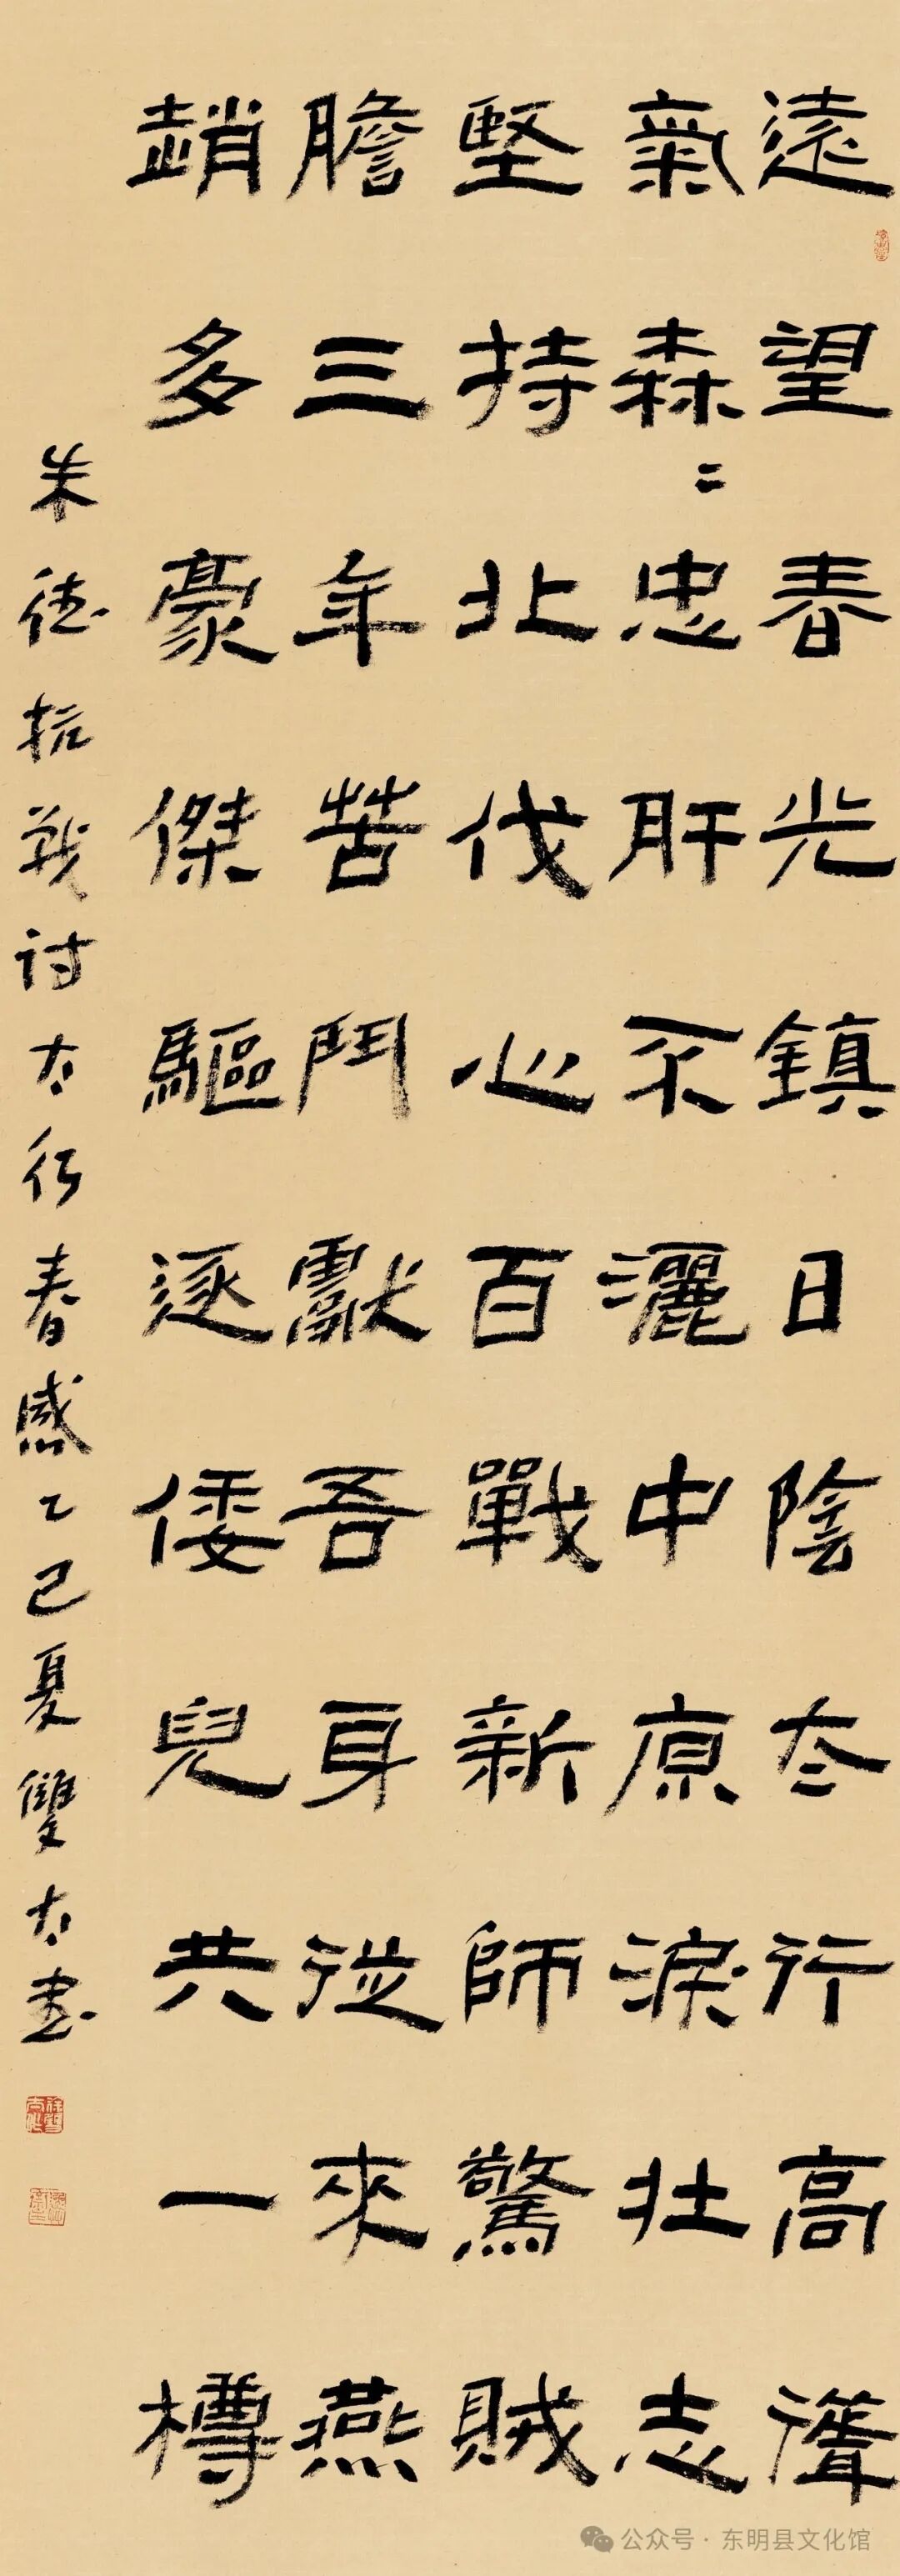 遠望春光鎮日陰太行高聳
氣森々忠肝不灑中原淚壯志
堅持北伐心百戰新師驚賊
膽三年苦鬥獻吾身從來燕
趙多豪傑驅逐倭兒共一樽
朱德抗戰討太行春感乙巳夏雙太書
公众号 · 东明县文化馆